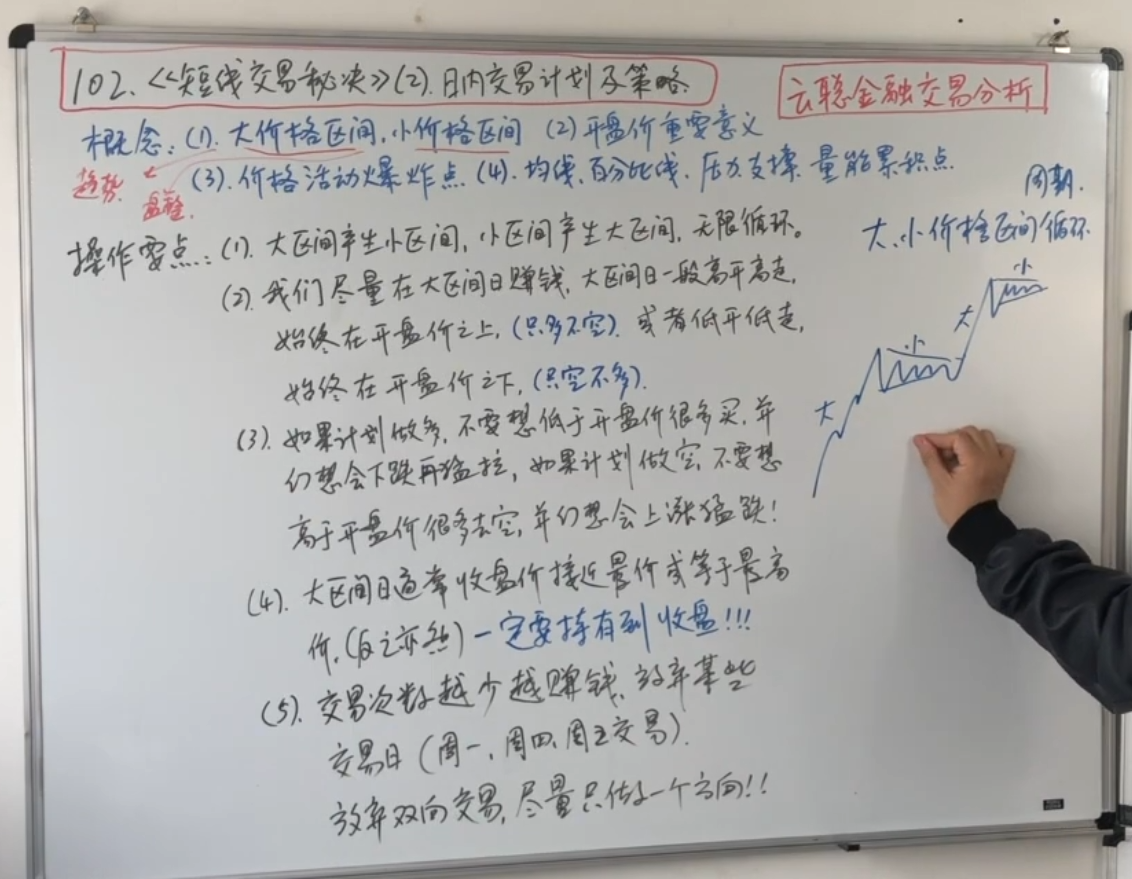 102.《短线交易秘决》(2).日内交易计划及策略.
云聪金融交易分析
概念:(1).大价格区间,小价格区间 (2)开盘价重要意义
趋势
盘整.
(3).价格活动爆炸点.(4).均线.百分比线.压力.支撑.量能累积点.
周期.
大、小价格区间循环
操作要点:(1).大区间产生小区间,小区间产生大区间,无限循环。
(2).我们尽量在大区间日赚钱,大区间日一般高开高走,
始终在开盘价之上,(只多不空).或者低开低走,
始终在开盘价之下,(只空不多).
(3).如果计划做多,不要想低于开盘价很多买,并
幻想会下跌再猛拉,如果计划做空,不要想
高于开盘价很多去空,并幻想会上涨猛跌!
(4).大区间日通常收盘价接近最价或等于最高
价.(反之亦然)一定要持有到收盘!!!
(5).交易次数越少越赚钱,放弃某些
交易日(周一、周四、周五交易).
放弃双向交易,尽量只做一个方向!!
大
小
大
小